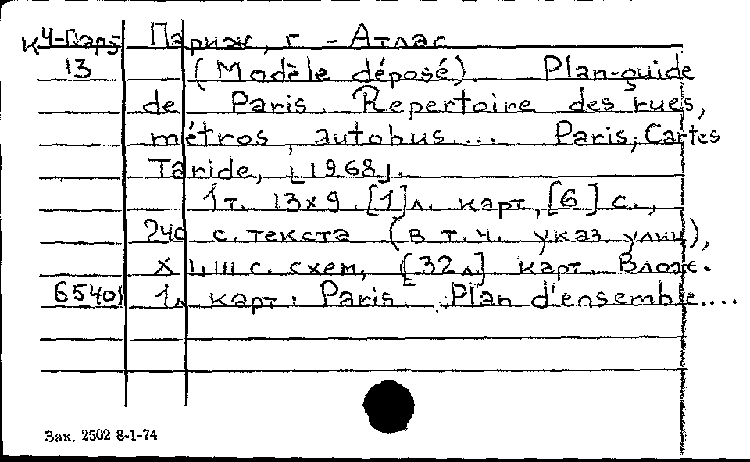 К Ч-Пар Париж, г. - Атлас
13 (Modèle déposé) Plan-guide
de Paris. Repertoire des rues,
métros, autobus... Paris, Cartes
Taride, [1968].
1 т. 13x9. [1] л. карт, [6] с.,
240 с. текста (в т.ч. указ. улиц),
с. схем, [32 л.] карт. Влож.
6540 1 л. карт: Paris. Plan d'ensemble....
Зак. 2502 8-1-74